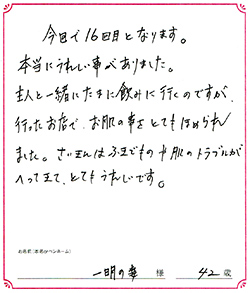 今回で16回目となります。
本当にうれしい事がありました。
主人と一緒にたまに飲みに行くのですが、
行ったお店で、お肌の事をとてもほめられ
ました。さい王んはふき でものや肌のトラブルが
へってきて、とてもうれしいです。
お名前(本名orペンネーム)
明の幸 様 42歳